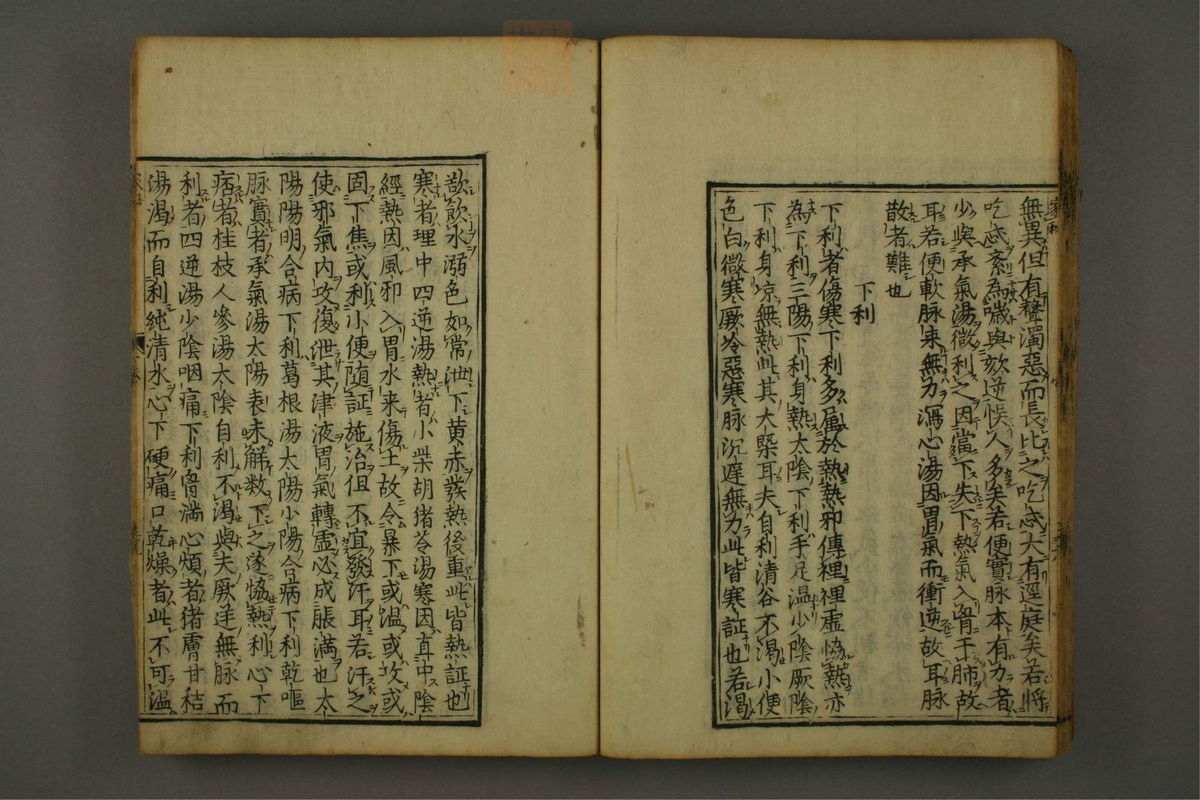 無異但有聲濁惡而長比之吃忒大有逕庭矣若將
吃忒紊為噦與欬逆悞人多矣若便實脉本有力者
少與承氣湯微利之因當下失下熱氣入胃干肺故
耳若便軟脉来無力瀉心湯因胃氣而衝逆故耳脉
散者難也
下利
下利者傷寒下利多属於熱熱邪傳裡裡虚恊熱亦
為下利三陽下利身熱太陰下利手足温少陰厥陰
下利身凉無熱此其大槩耳夫自利清谷不渇小便
色白微寒厥冷惡寒脉沉遅無力此皆寒証也若渇
欲飲水溺色如常泄下黄赤發熱後重此皆熱証也
寒者理中四逆湯熱者小柴胡猪苓湯寒因直中陰
經熱因風邪入胃水来傷土故令暴下或温或攻或
固下焦或利小便随証施治但不宜發汗耳若汗之
使邪氣内攻復泄其津液胃氣轉虚必成脹満也太
陽陽明合病下利葛根湯太陽小陽合病下利乾嘔
脉實者承氣湯太陽表未解数下之遂恊熱利心下
痞者桂枝人參湯太陰自利不渇與夫厥逆無脉而
利者四逆湯少陰咽痛下利胷満心煩者猪膚甘秸
湯渇而自利純清水心下硬痛口乾燥者此不可温